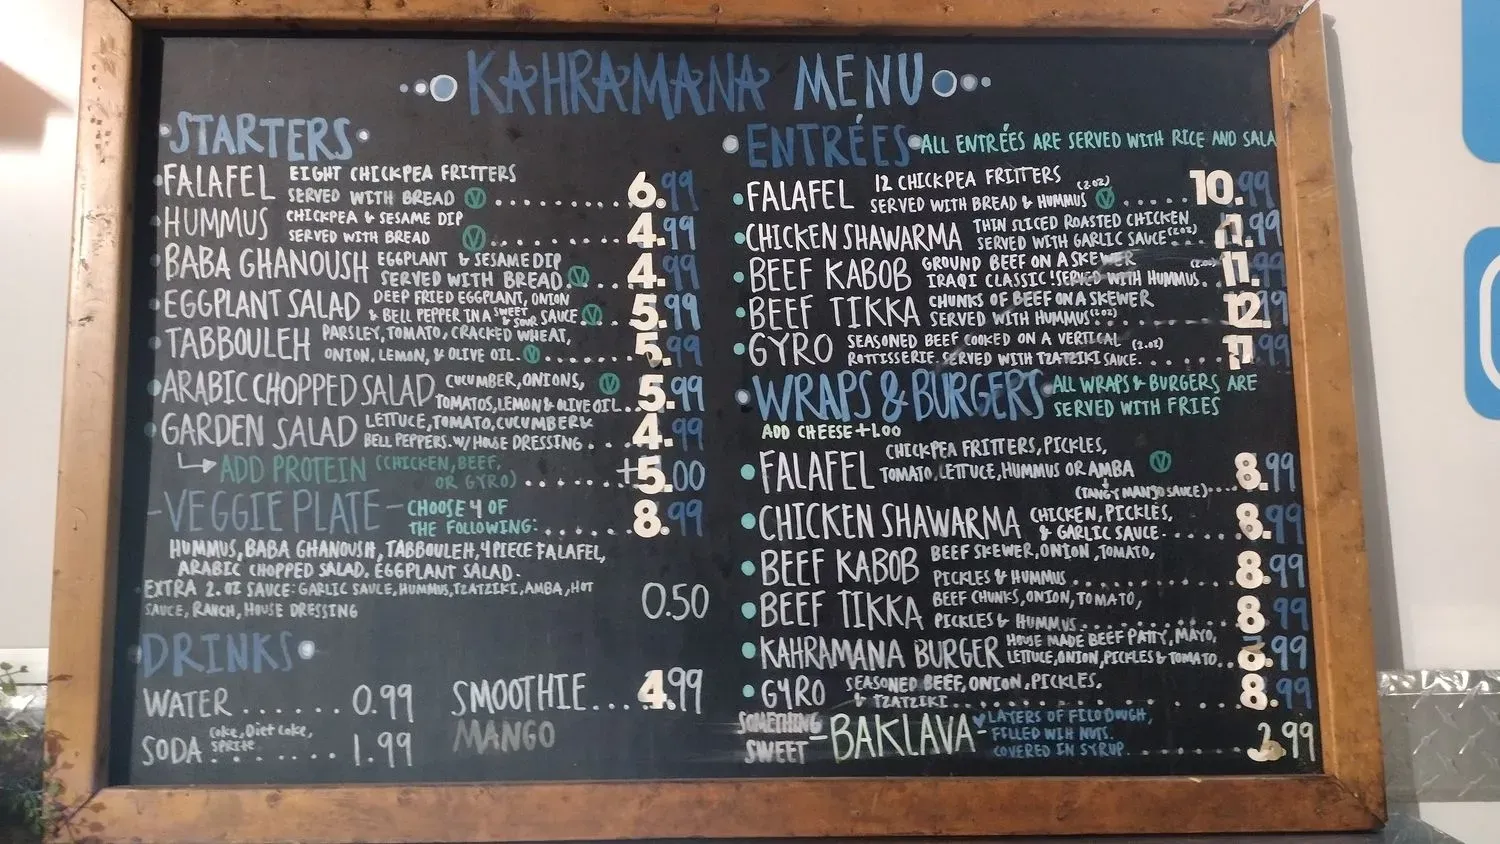 KAHRAMANA MENU
STARTERS
FALAFEL EIGHT CHICKPEA FRITTERS
SERVED WITH BREAD V 6.99
HUMMUS CHICKPEA & SESAME DIP
SERVED WITH BREAD V 4.99
BABA GHANOUSH EGGPLANT & SESAME DIP
SERVED WITH BREAD V 4.99
EGGPLANT SALAD DEEP FRIED EGGPLANT, ONION
& BELL PEPPER IN A SWEET & SOUR SAUCE V 5.99
TABBOULEH PARSLEY, TOMATO, CRACKED WHEAT,
ONION, LEMON, & OLIVE OIL. V 5.99
ARABIC CHOPPED SALAD CUCUMBER, ONIONS, V
TOMATOS, LEMON & OLIVE OIL.. 5.99
GARDEN SALAD LETTUCE, TOMATO, CUCUMBER &
BELL PEPPERS. W/ HOUSE DRESSING.... 4.99
ADD PROTEIN (CHICKEN, BEEF,
OR GYRO) +5.00
-VEGGIE PLATE- CHOOSE 4 OF
THE FOLLOWING: 8.99
HUMMUS, BABA GHANOUSH, TABBOULEH, 4 PIECE FALAFEL,
ARABIC CHOPPED SALAD, EGGPLANT SALAD.
EXTRA 2.OZ SAUCE: GARLIC SAUCE, HUMMUS, TZATZIKI, AMBA, HOT
SAUCE, RANCH, HOUSE DRESSING 0.50
DRINKS
WATER ...... 0.99
SODA Coke, Diet Coke,
SPRITE. 1.99
SMOOTHIE... 4.99
MANGO
ENTRÉES ALL ENTRÉES ARE SERVED WITH RICE AND SALA
FALAFEL 12 CHICKPEA FRITTERS
SERVED WITH BREAD & HUMMUS (2 OZ) V ..... 10.99
CHICKEN SHAWARMA THIN SLICED ROASTED CHICKEN
SERVED WITH GARLIC SAUCE (2 OZ) 11.99
BEEF KABOB GROUND BEEF ON A SKEWER
IRAQI CLASSIC! SERVED WITH HUMMUS. 11.99
BEEF TIKKA CHUNKS OF BEEF ON A SKEWER
SERVED WITH HUMMUS (2 OZ) 12.99
GYRO SEASONED BEEF COOKED ON A VERTICAL (2.OZ)
ROTTISSERIE. SERVED WITH TZATZIKI SAUCE. 11.99
WRAPS & BURGERS ALL WRAPS & BURGERS ARE
SERVED WITH FRIES
ADD CHEESE +1.00
FALAFEL CHICKPEA FRITTERS, PICKLES,
TOMATO, LETTUCE, HUMMUS OR AMBA V
(TANGY MANGO SAUCE) 8.99
CHICKEN SHAWARMA CHICKEN, PICKLES,
& GARLIC SAUCE. 8.99
BEEF KABOB BEEF SKEWER, ONION, TOMATO,
PICKLES & HUMMUS 8.99
BEEF TIKKA BEEF CHUNKS, ONION, TOMATO,
PICKLES & HUMMUS 8.99
KAHRAMANA BURGER HOUSE MADE BEEF PATTY, MAYO,
LETTUCE, ONION, PICKLES & TOMATO.. 8.99
GYRO SEASONED BEEF, ONION, PICKLES,
& TZATZIKI 8.99
SOMETHING SWEET - BAKLAVA - LAYERS OF FILO DOUGH,
FILLED WIH NUTS.
COVERED IN SYRUP. 2.99